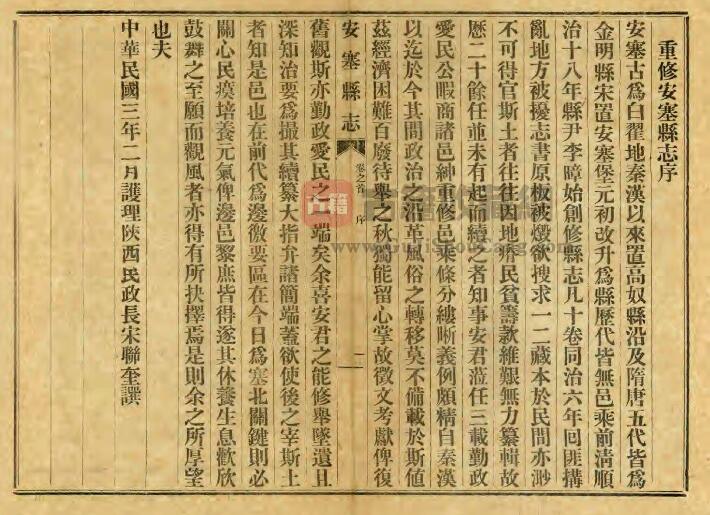 重修安塞縣志序
安塞古爲白翟地秦漢以來置高奴縣沿及隋唐五代皆爲
金明縣宋置安塞堡元初改升爲縣歷代皆無邑乘前淸順
治十八年縣尹李暲始創修縣志凡十卷同治六年回匪搆
亂地方被擾志書原板被燬欲搜求一二藏本於民間亦渺
不可得官斯土者往往因地瘠民貧籌款維艱無力纂輯故
歷二十餘任並未有起而續之者知事安君蒞任三載勤政
愛民公暇商諸邑紳重修邑乘條分縷晰義例頗精自秦漢
以迄於今其間政治之沿革風俗之轉移莫不備載於斯値
茲經濟困難百廢待舉之秋獨能留心掌故徵文考獻俾復
安塞縣志
卷之首 序
一
舊觀斯亦勤政愛民之一端矣余喜安君之能修舉墜遺且
深知治要爲撮其續纂大指弁諸簡端蓋欲使後之宰斯土
者知是邑也在前代爲邊徼要區在今日爲塞北關鍵則必
關心民瘼培養元氣俾邊邑黎庶皆得遂其休養生息歡欣
鼓舞之至願而觀風者亦得有所抉擇焉是則余之所厚望
也夫
中華民國三年二月護理陝西民政長宋聯奎譔
古籍
www.gujishoucang.com